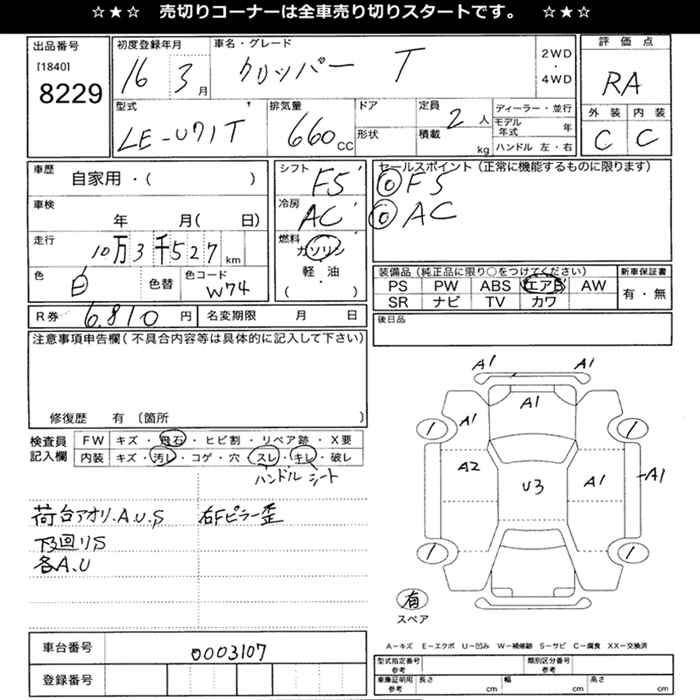 ☆★☆ 売切りコーナーは全車売り切りスタートです。 ☆★☆
出品番号
[1840]
8229
初度登録年月
16 3月
車名・グレード
クリッパー T
2WD
・
4WD
評価点
RA
外装 内装
C C
型式
LE-U71T
排気量
660 CC
ドア
形状
定員
2人
積載
kg
ディーラー・並行
モデル年式 年
ハンドル 左・右
車歴
自家用・( )
車検
年 月( 日)
走行
10万3千527 km
色
白
色替
色コード
W74
シフト
F5
冷房
AC
燃料
ガソリン
軽・油
( )
セールスポイント(正常に機能するものに限ります)
◎F5
◎AC
装備品(純正品に限り○をつけてください)
PS PW ABS エアB AW
SR ナビ TV カワ
新車保証書
有・無
R券 6,810 円
名変期限 月 日
後日品
注意事項申告欄(不具合内容等は具体的に記入して下さい)
修復歴 有(箇所
検査員記入欄
FW キズ・飛石・ヒビ割・リペア跡・X要
内装 キズ・汚レ・コゲ・穴・スレ・キレ・破レ
ハンドル シート
荷台アオリ.A.U.S
右Fピラー歪
下回りS
各A.U
A1 A1
A1
A1
1 1
A2
U3
A1
A1
1 1
有
スペア
A-キズ E-エクボ U-凹み W-補修跡 S-サビ C-腐食 XX-交換済
車台番号
0003107
登録番号
型式指定番号 参考
類別区分番号 参考
車庫証明用 参考
長さ cm
幅 cm
高さ cm